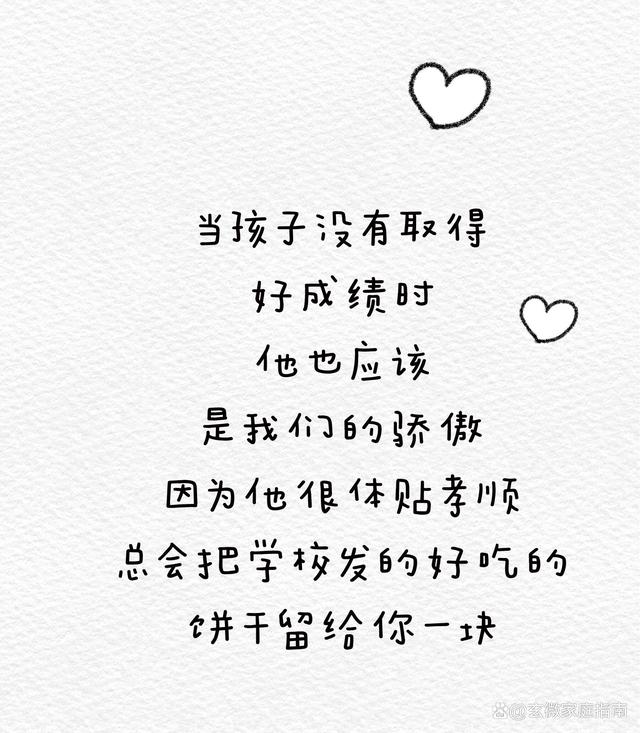 当孩子没有取得
好成绩时
他也应该
是我们的骄傲
因为他很体贴孝顺
总会把学校发的好吃的
饼干留给你一块
@玄微家庭指南